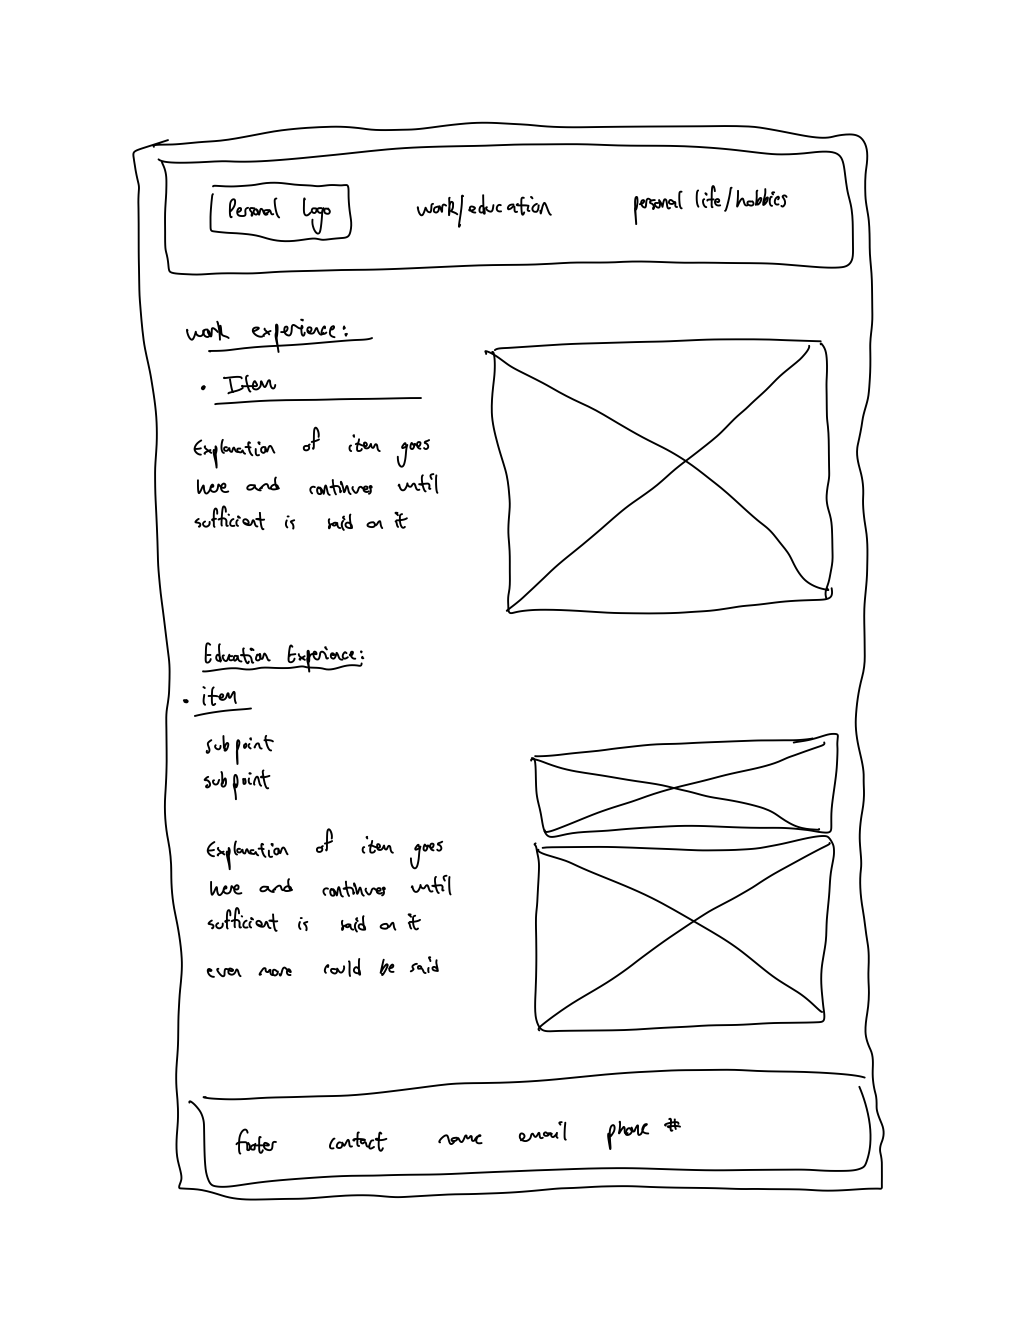 Personal Logo work/education personal life/hobbies
work experience:
• Item
Explanation of item goes
here and continues until
sufficient is said on it
Education Experience:
• item
subpoint
subpoint
Explanation of item goes
here and continues until
sufficient is said on it
even more could be said
footer contact name email phone #